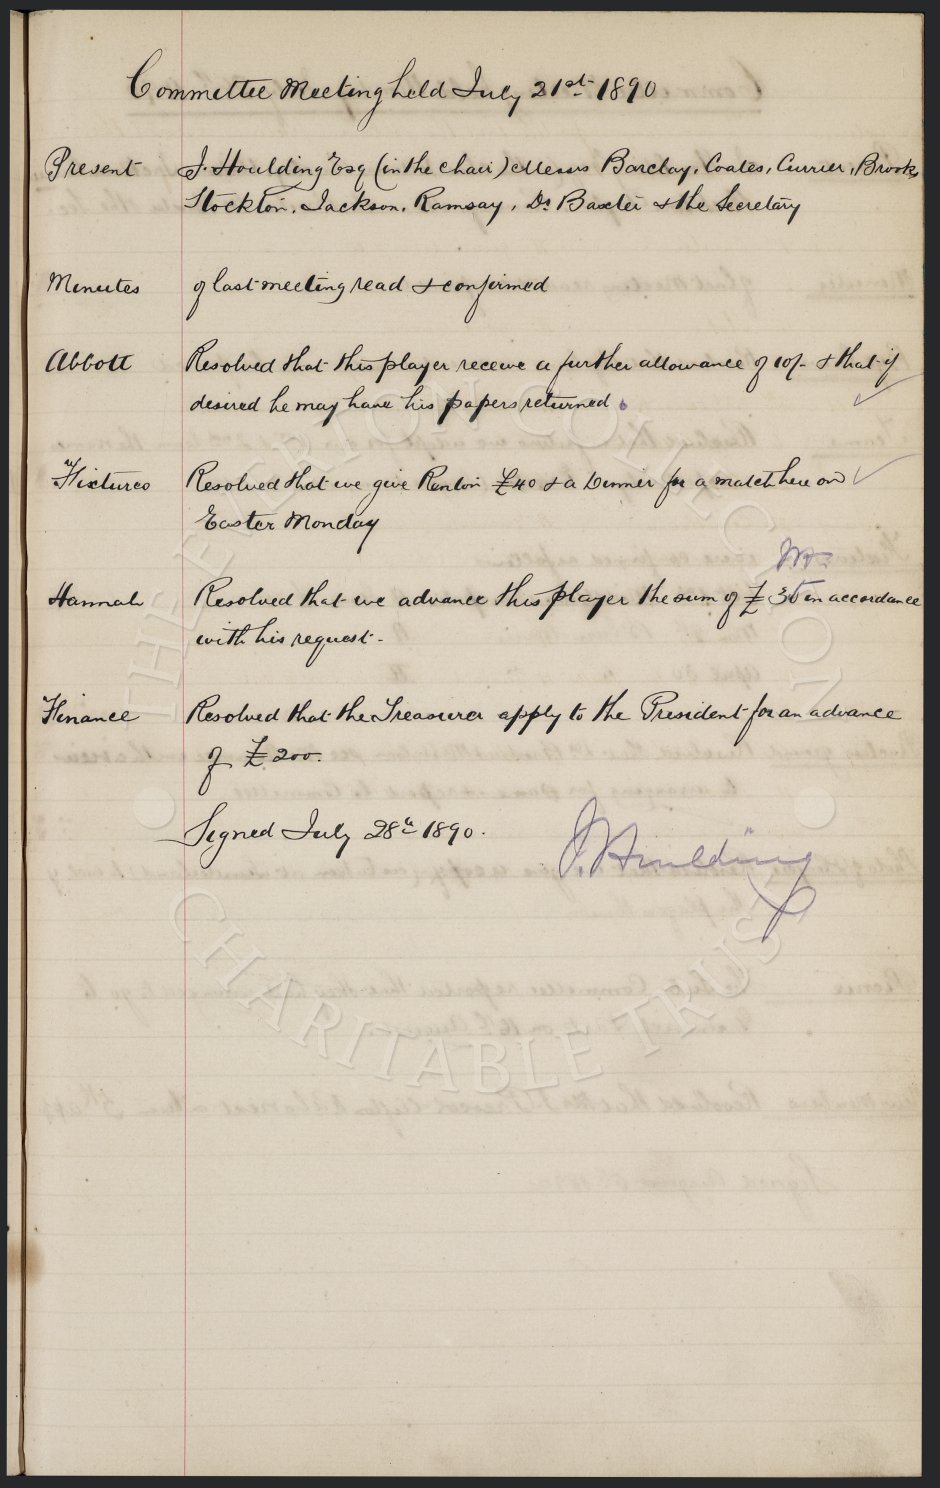 Committee Meeting held July 21st 1890
Present J. Houlding Esq (in the chair) Messrs Barclay, Coates, Currier, Brooks,
Stockton, Jackson, Ramsay, Dr Baxter & the Secretary
Minutes of last meeting read & confirmed
Abbott Resolved that this player receive a further allowance of 10/- & that if
desired he may have his papers returned.
Fixtures Resolved that we give Renton £40 & a Dinner for a match here on
Easter Monday
JH
Hannah Resolved that we advance this player the sum of £ 35 in accordance
with his request-
Finance Resolved that the Treasurer apply to the President for an advance
of £200.
Signed July 28th 1890.
J. Houlding
THE EVERTON COLLECTION
CHARITABLE TRUST